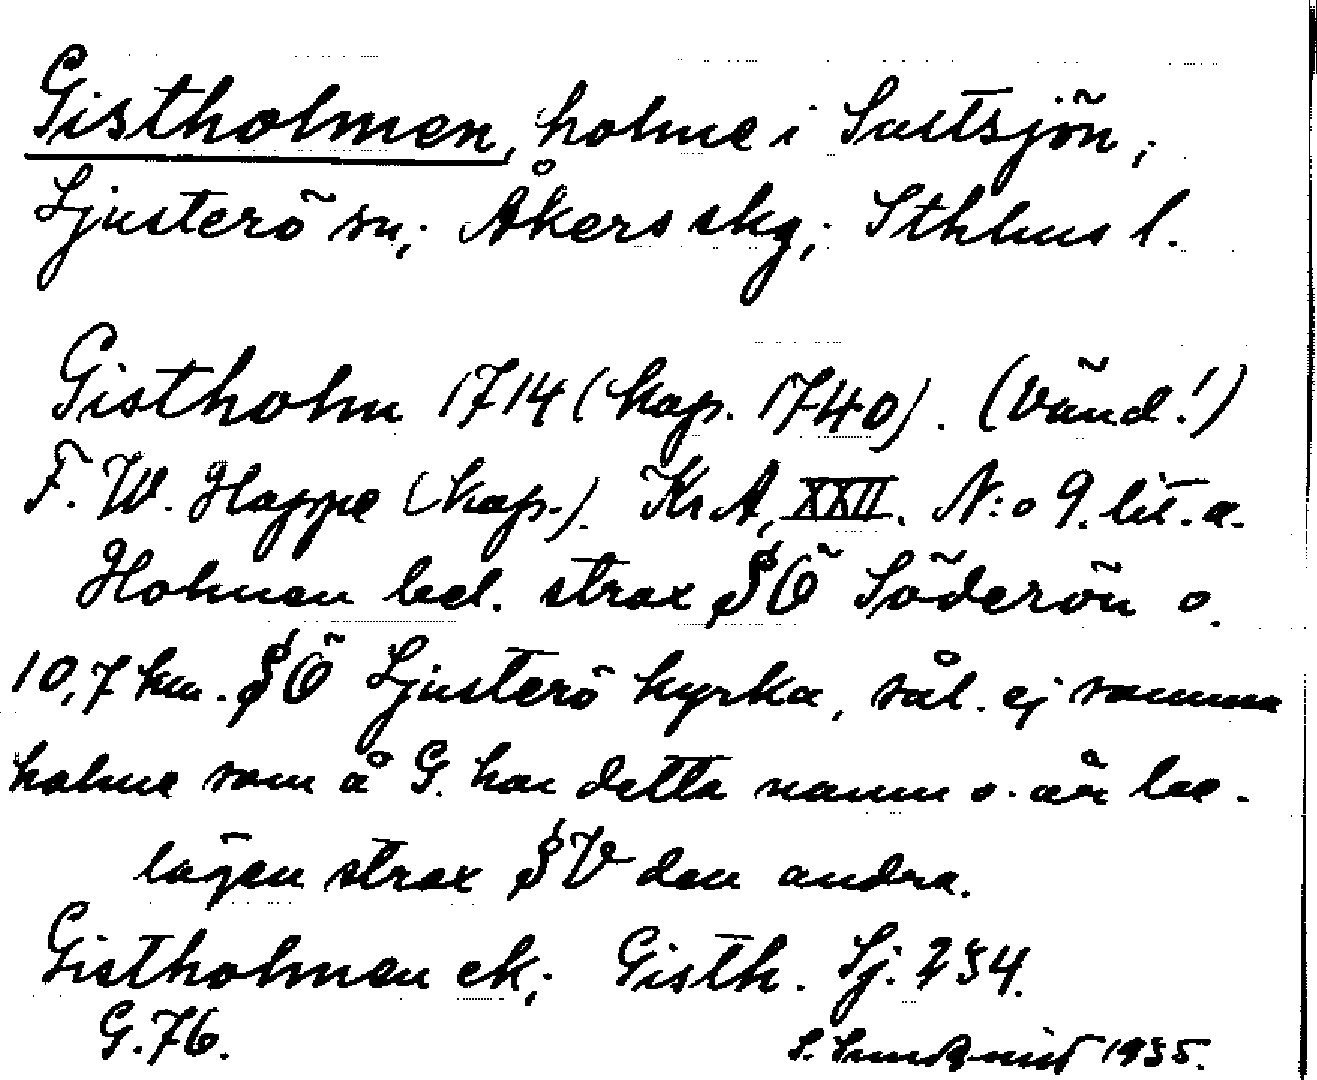 Gistholmen, holme i Saltsjön,
Ljusterö sn, Åkers skg, Sthlms l.
Gistholm 1714 (kop. 1740). (Vänd!)
F. W. Happe (kop.). Kr.A, XXII. N:o 9. lit. a.
Holmen bel. strax SÖ Söderön o.
10,7 km. SÖ Ljusterö kyrka, sål. ej samma
holme som å G. har detta namn o. är be-
lägen strax SV den andra.
Gistholmen ek; Gisth. Sj. 234.
G. 76.
S. Sundqvist 1935.